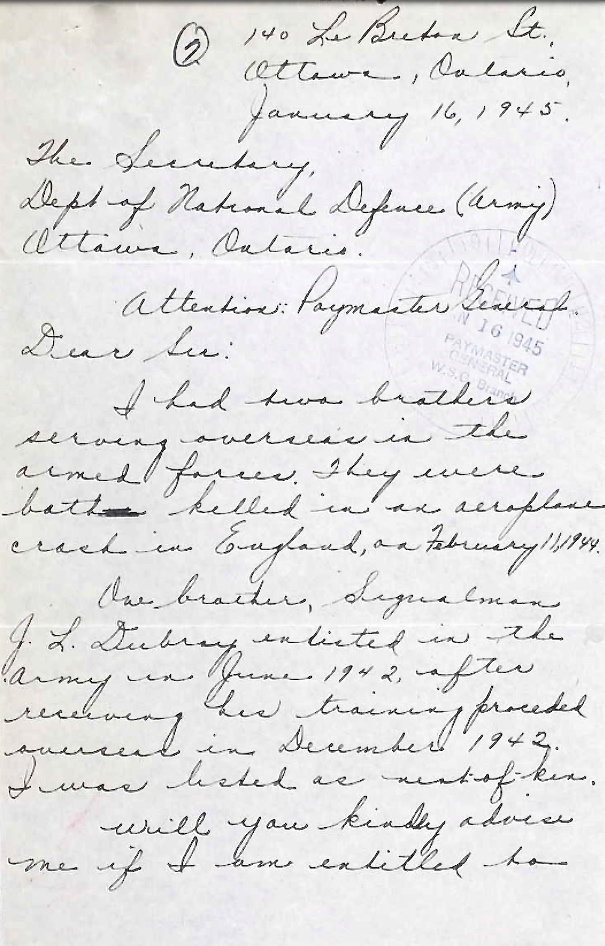 ② 140 Le Breton St.,
Ottawa, Ontario,
January 16, 1945.
The Secretary,
Dept of National Defence (Army)
Ottawa, Ontario.
Attention: Paymaster General.
RECEIVED
JAN 16 1945
PAYMASTER
GENERAL
W.S.G. Branch
Dear Sir:
I had two brothers
serving overseas in the
armed forces. They were
both killed in an aeroplane
crash in England, on February 11, 1944.
One brother, Signalman
J. L. Dubroy enlisted in the
Army in June 1942, after
receiving his training proceded
overseas in December 1942.
I was listed as next-of-kin.
Will you kindly advise
me if I am entitled to